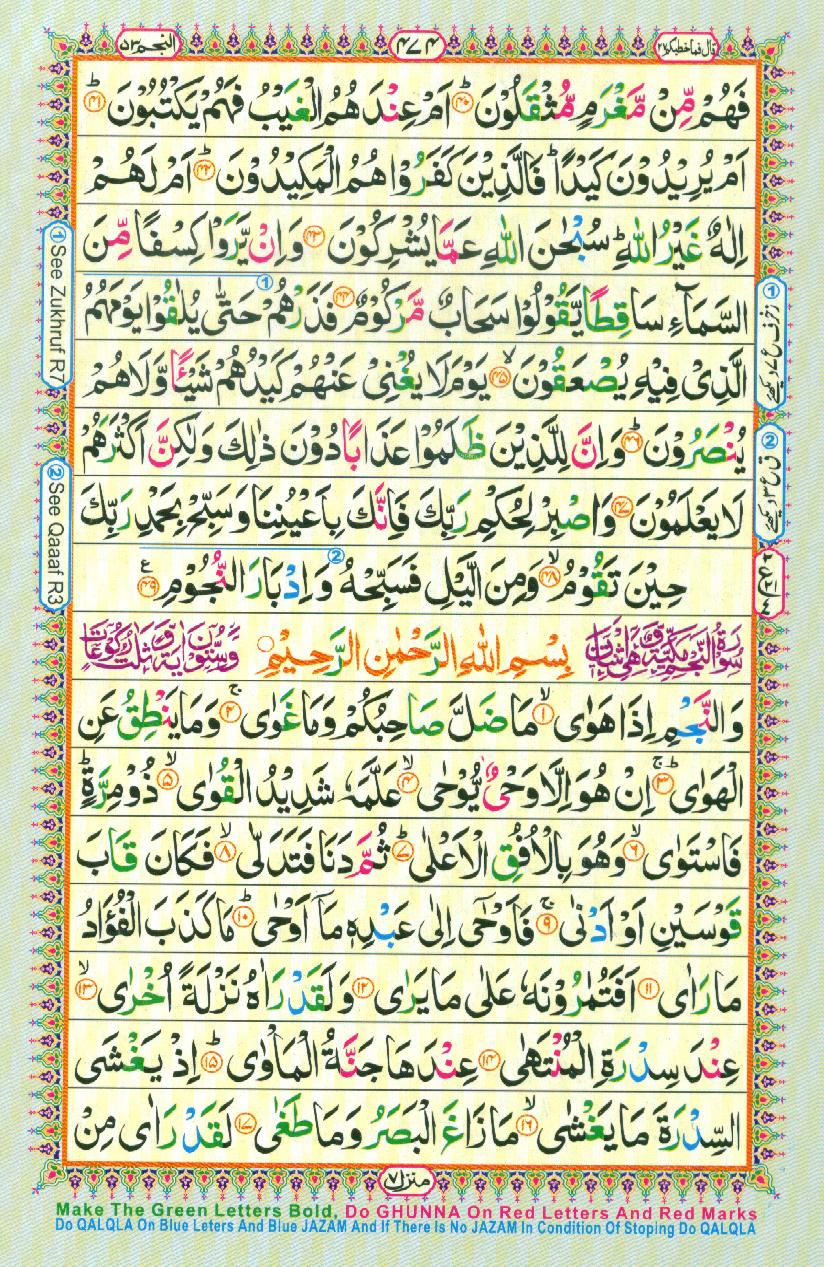 النجم ۵۳
۴۷۴
قال فما خطبكم ۲۷
فَهُمْ مِّنْ مَّغْرَمٍ مُّثْقَلُوْنَ ﴿۴۰﴾ؕ اَمْ عِنْدَهُمُ الْغَيْبُ فَهُمْ يَكْتُبُوْنَ ﴿۴۱﴾ؕ
اَمْ يُرِيْدُوْنَ كَيْدًا ؕ فَالَّذِيْنَ كَفَرُوْا هُمُ الْمَكِيْدُوْنَ ﴿۴۲﴾ؕ اَمْ لَهُمْ
اِلٰهٌ غَيْرُ اللّٰهِ ؕ سُبْحٰنَ اللّٰهِ عَمَّا يُشْرِكُوْنَ ﴿۴۳﴾ وَاِنْ يَّرَوْا كِسْفًا مِّنَ
السَّمَآءِ سَاقِطًا يَّقُوْلُوْا سَحَابٌ مَّرْكُوْمٌ ﴿۴۴﴾ فَذَرْهُمْ ① حَتّٰى يُلٰقُوْا يَوْمَهُمُ
الَّذِىْ فِيْهِ يُصْعَقُوْنَ ﴿۴۵﴾ۙ يَوْمَ لَا يُغْنِىْ عَنْهُمْ كَيْدُهُمْ شَيْـًٔا وَّلَا هُمْ
يُنْصَرُوْنَ ﴿۴۶﴾ؕ وَاِنَّ لِلَّذِيْنَ ظَلَمُوْا عَذَابًا دُوْنَ ذٰلِكَ وَلٰكِنَّ اَكْثَرَهُمْ
لَا يَعْلَمُوْنَ ﴿۴۷﴾ وَاصْبِرْ لِحُكْمِ رَبِّكَ فَاِنَّكَ بِاَعْيُنِنَا وَسَبِّحْ بِحَمْدِ رَبِّكَ
حِيْنَ تَقُوْمُ ﴿۴۸﴾ۙ وَمِنَ الَّيْلِ فَسَبِّحْهُ ② وَاِدْبَارَ النُّجُوْمِ ﴿۴۹﴾ ع
سورة النجم مكية وهى اثنتان بِسْمِ اللّٰهِ الرَّحْمٰنِ الرَّحِيْمِ وستون اية وثلث ركوعات
وَالنَّجْمِ اِذَا هَوٰى ﴿۱﴾ۙ مَا ضَلَّ صَاحِبُكُمْ وَمَا غَوٰى ﴿۲﴾ۚ وَمَا يَنْطِقُ عَنِ
الْهَوٰى ﴿۳﴾ؕ اِنْ هُوَ اِلَّا وَحْىٌ يُّوْحٰى ﴿۴﴾ۙ عَلَّمَهٗ شَدِيْدُ الْقُوٰى ﴿۵﴾ۙ ذُوْ مِرَّةٍ ؕ
فَاسْتَوٰى ﴿۶﴾ۙ وَهُوَ بِالْاُفُقِ الْاَعْلٰى ﴿۷﴾ؕ ثُمَّ دَنَا فَتَدَلّٰى ﴿۸﴾ۙ فَكَانَ قَابَ
قَوْسَيْنِ اَوْ اَدْنٰى ﴿۹﴾ۚ فَاَوْحٰٓى اِلٰى عَبْدِهٖ مَآ اَوْحٰى ﴿۱۰﴾ؕ مَا كَذَبَ الْفُؤَادُ
مَا رَاٰى ﴿۱۱﴾ اَفَتُمٰرُوْنَهٗ عَلٰى مَا يَرٰى ﴿۱۲﴾ وَلَقَدْ رَاٰهُ نَزْلَةً اُخْرٰى ﴿۱۳﴾ۙ
عِنْدَ سِدْرَةِ الْمُنْتَهٰى ﴿۱۴﴾ عِنْدَهَا جَنَّةُ الْمَاْوٰى ﴿۱۵﴾ؕ اِذْ يَغْشَى
السِّدْرَةَ مَا يَغْشٰى ﴿۱۶﴾ۙ مَا زَاغَ الْبَصَرُ وَمَا طَغٰى ﴿۱۷﴾ لَقَدْ رَاٰى مِنْ
منزل ۷
① See Zukhruf R7
② See Qaaaf R3
Make The Green Letters Bold, Do GHUNNA On Red Letters And Red Marks
Do QALQLA On Blue Leters And Blue JAZAM And If There Is No JAZAM In Condition Of Stoping Do QALQLA